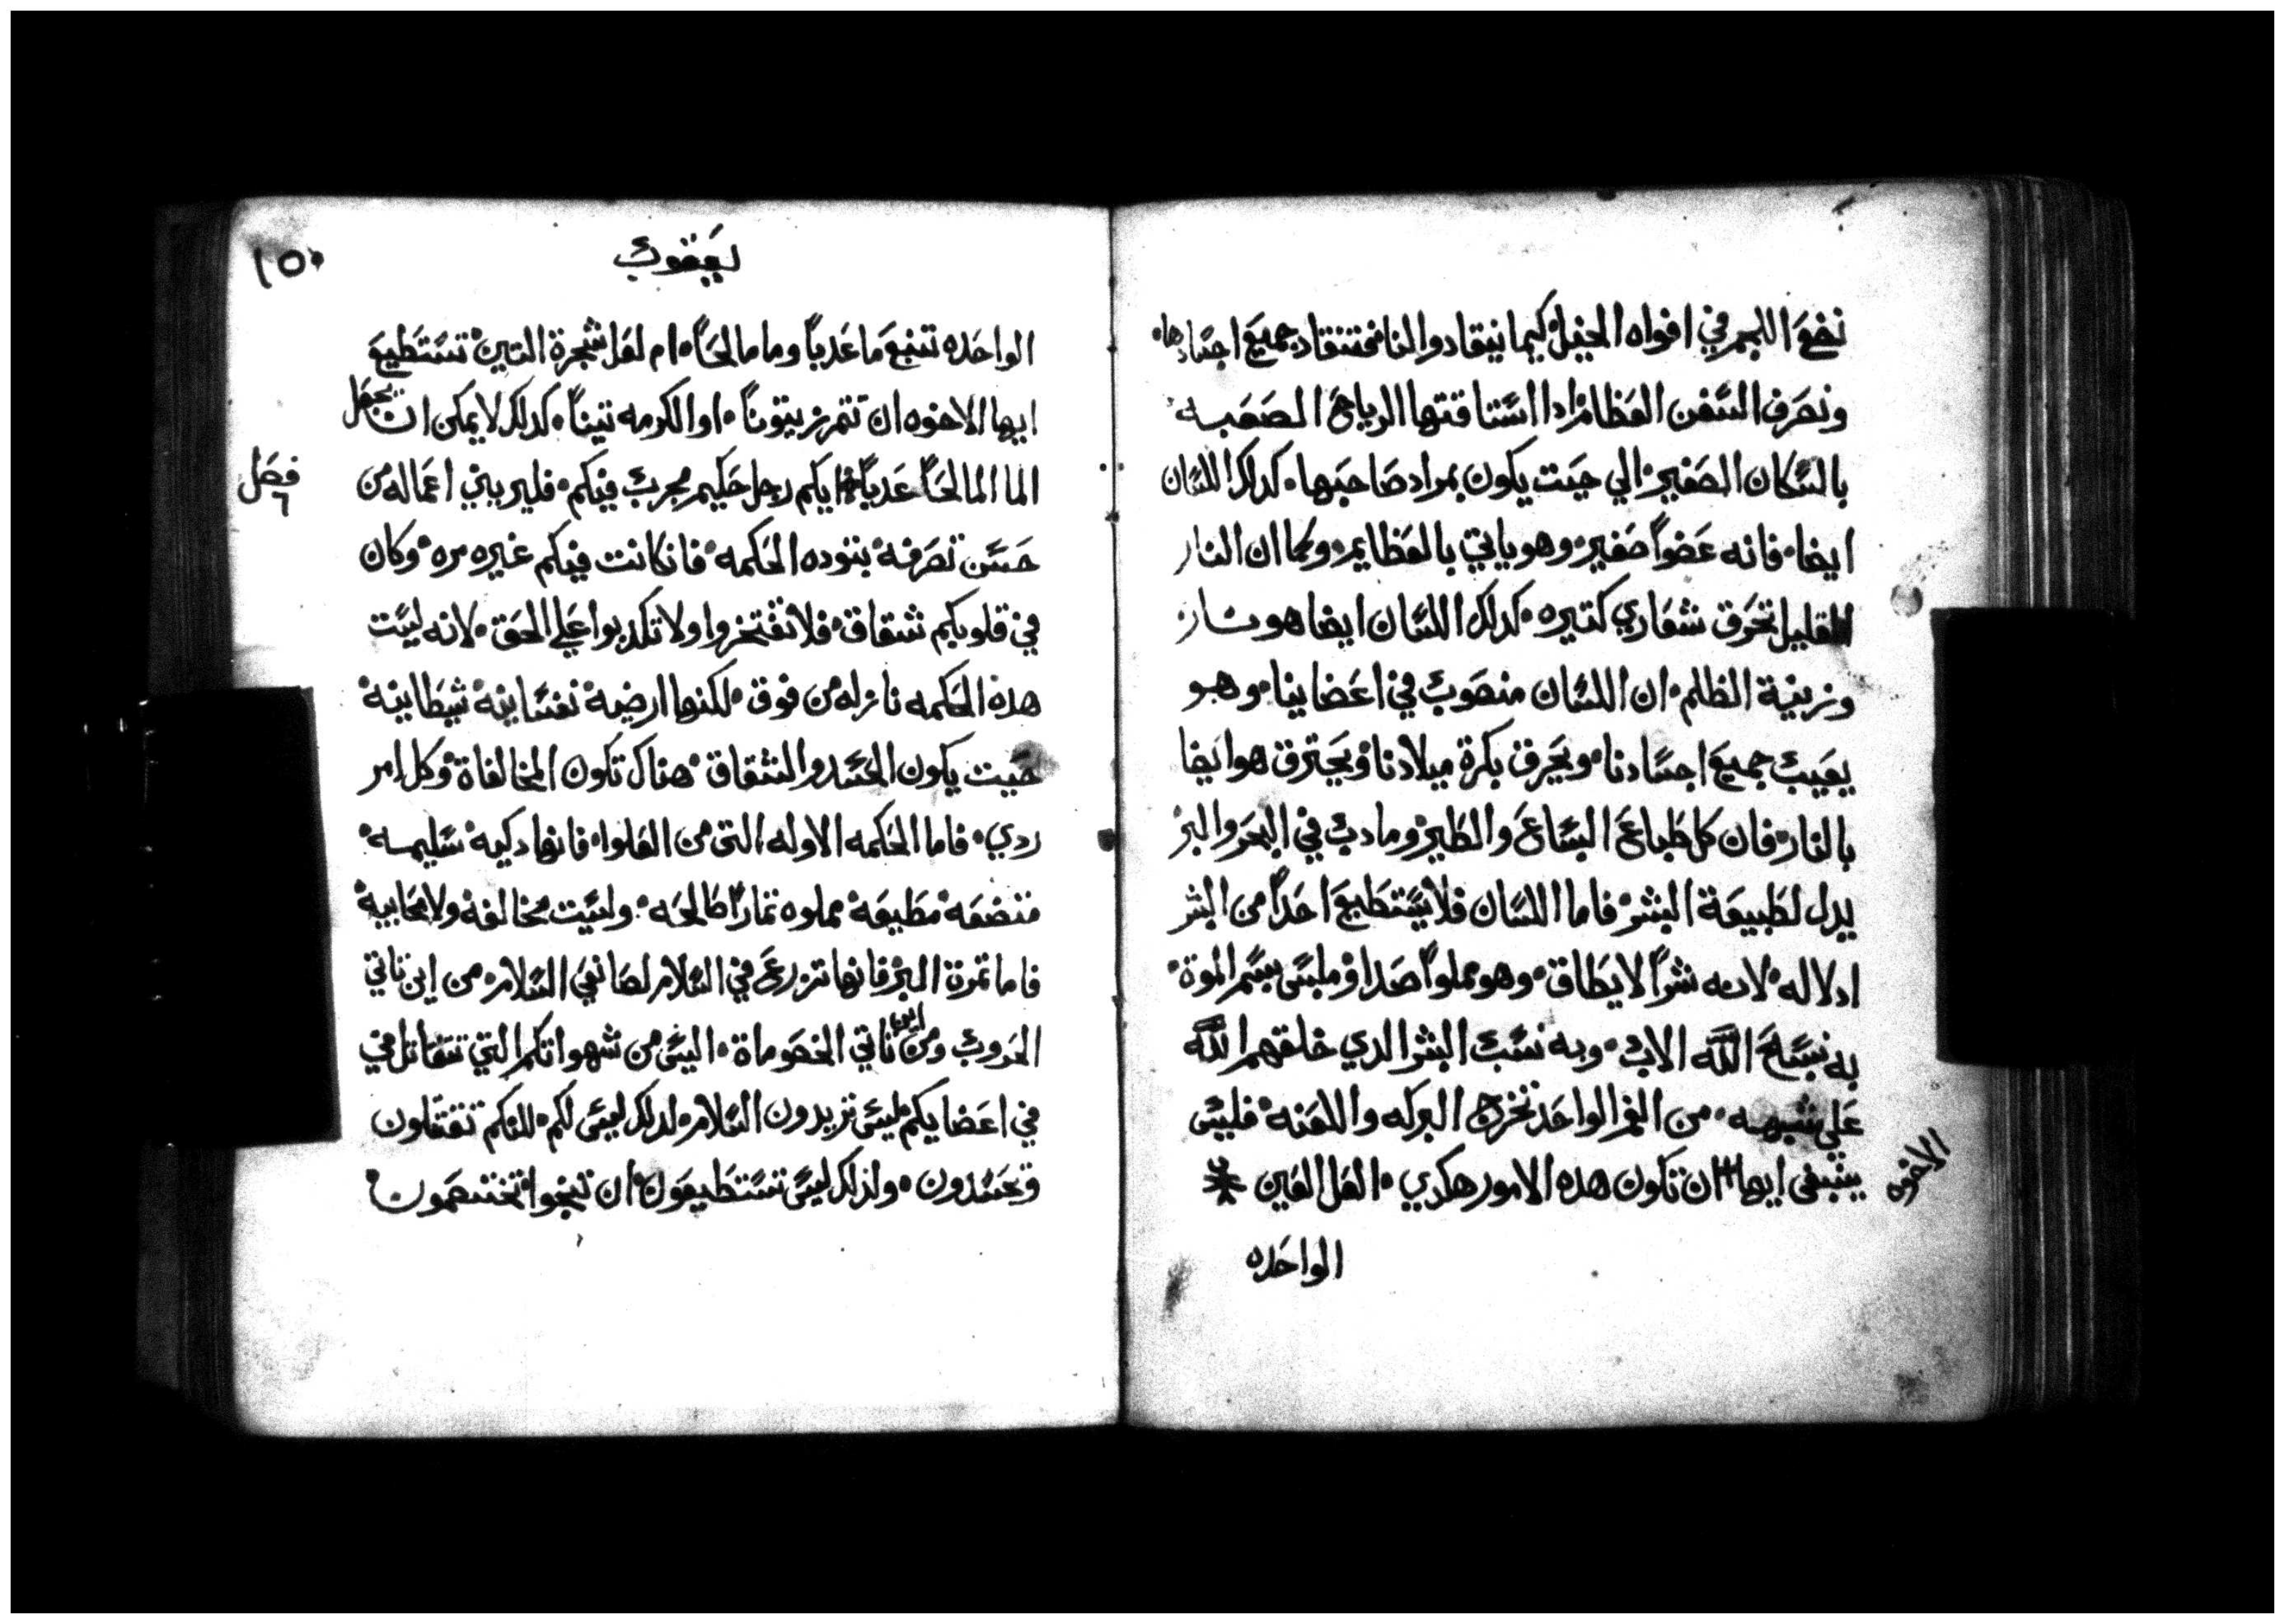 نضع اللجم في افواه الخيل كيما ينقادوا لنا فتنقاد جميع اجسادها
ونصرف السفن العظام ادا استاقتها الرياح الصعبه
بالسكان الصغير الي حيت يكون بمراد صاحبها كدلك اللسان
ايضا فانه عضواً صغير وهو ياتي بالعظايم وكما ان النار
القليل تحرق شعاري كتيره كدلك اللسان ايضا هو نار
وزينة الظلم ان اللسان منصوب في اعضاينا وهو
يعيب جميع اجسادنا ويحرق بكرة ميلادنا ويحترق هو ايضا
بالنار فان كل طباع السباع والطير وما دب في البحر والبر
يدل لطبيعة البشر فاما اللسان فلا يستطيع احداً من البشر
ادلاله لانه شراً لا يطاق وهو مملواً صدا وملبس بسم الموة
به نسبح الله الاب وبه نسب البشر الدي خلقهم الله
علي شبهه من الفم الواحد تخرج البركه واللعنه فليس
ينبغي ايها ان تكون هده الامور هكدي العل العين
الاخوه
الواحده
يعقوب
١٥٠
الواحده تنبع ما عدباً وما مالحاً ام لعل شجرة التين تستطيع
ايها الاخوه ان تتمر زيتوناً او الكرمه تيناً كدلك لا يمكن ان يجعل
الما المالحاً عدباً ايكم رجل حكيم مجرب فيكم فلير بني اعماله من
فصل
٦
حسن تصرفه بتوده الحكمه فان كانت فيكم غيره مره وكان
في قلوبكم شقاق فلا تفتخروا ولا تكدبوا علي الحق لانه ليست
هده الحكمه نازله من فوق لكنها ارضية نفسانية شيطانية
حيت يكون الحسد والشقاق هناك تكون المخالفاة وكل امر
ردي فاما الحكمه الاوله التي من العلوا فانها دكيه سليمه
متضعة مطيعة مملوه تماراً صالحه وليست مخالفة ولا محابية
فاما تمرة البر فانها تزرع في السلام لصانعي السلام من اين تاتي
الحروب ومن اين تاتي الخصوماة اليس من شهواتكم التي تتقاتل في
في اعضايكم ليس تريدون السلام لدلك ليس لكم للنكم تقتلون
وتحسدون ولدلك ليس تستطيعون ان تنجوا تختصمون